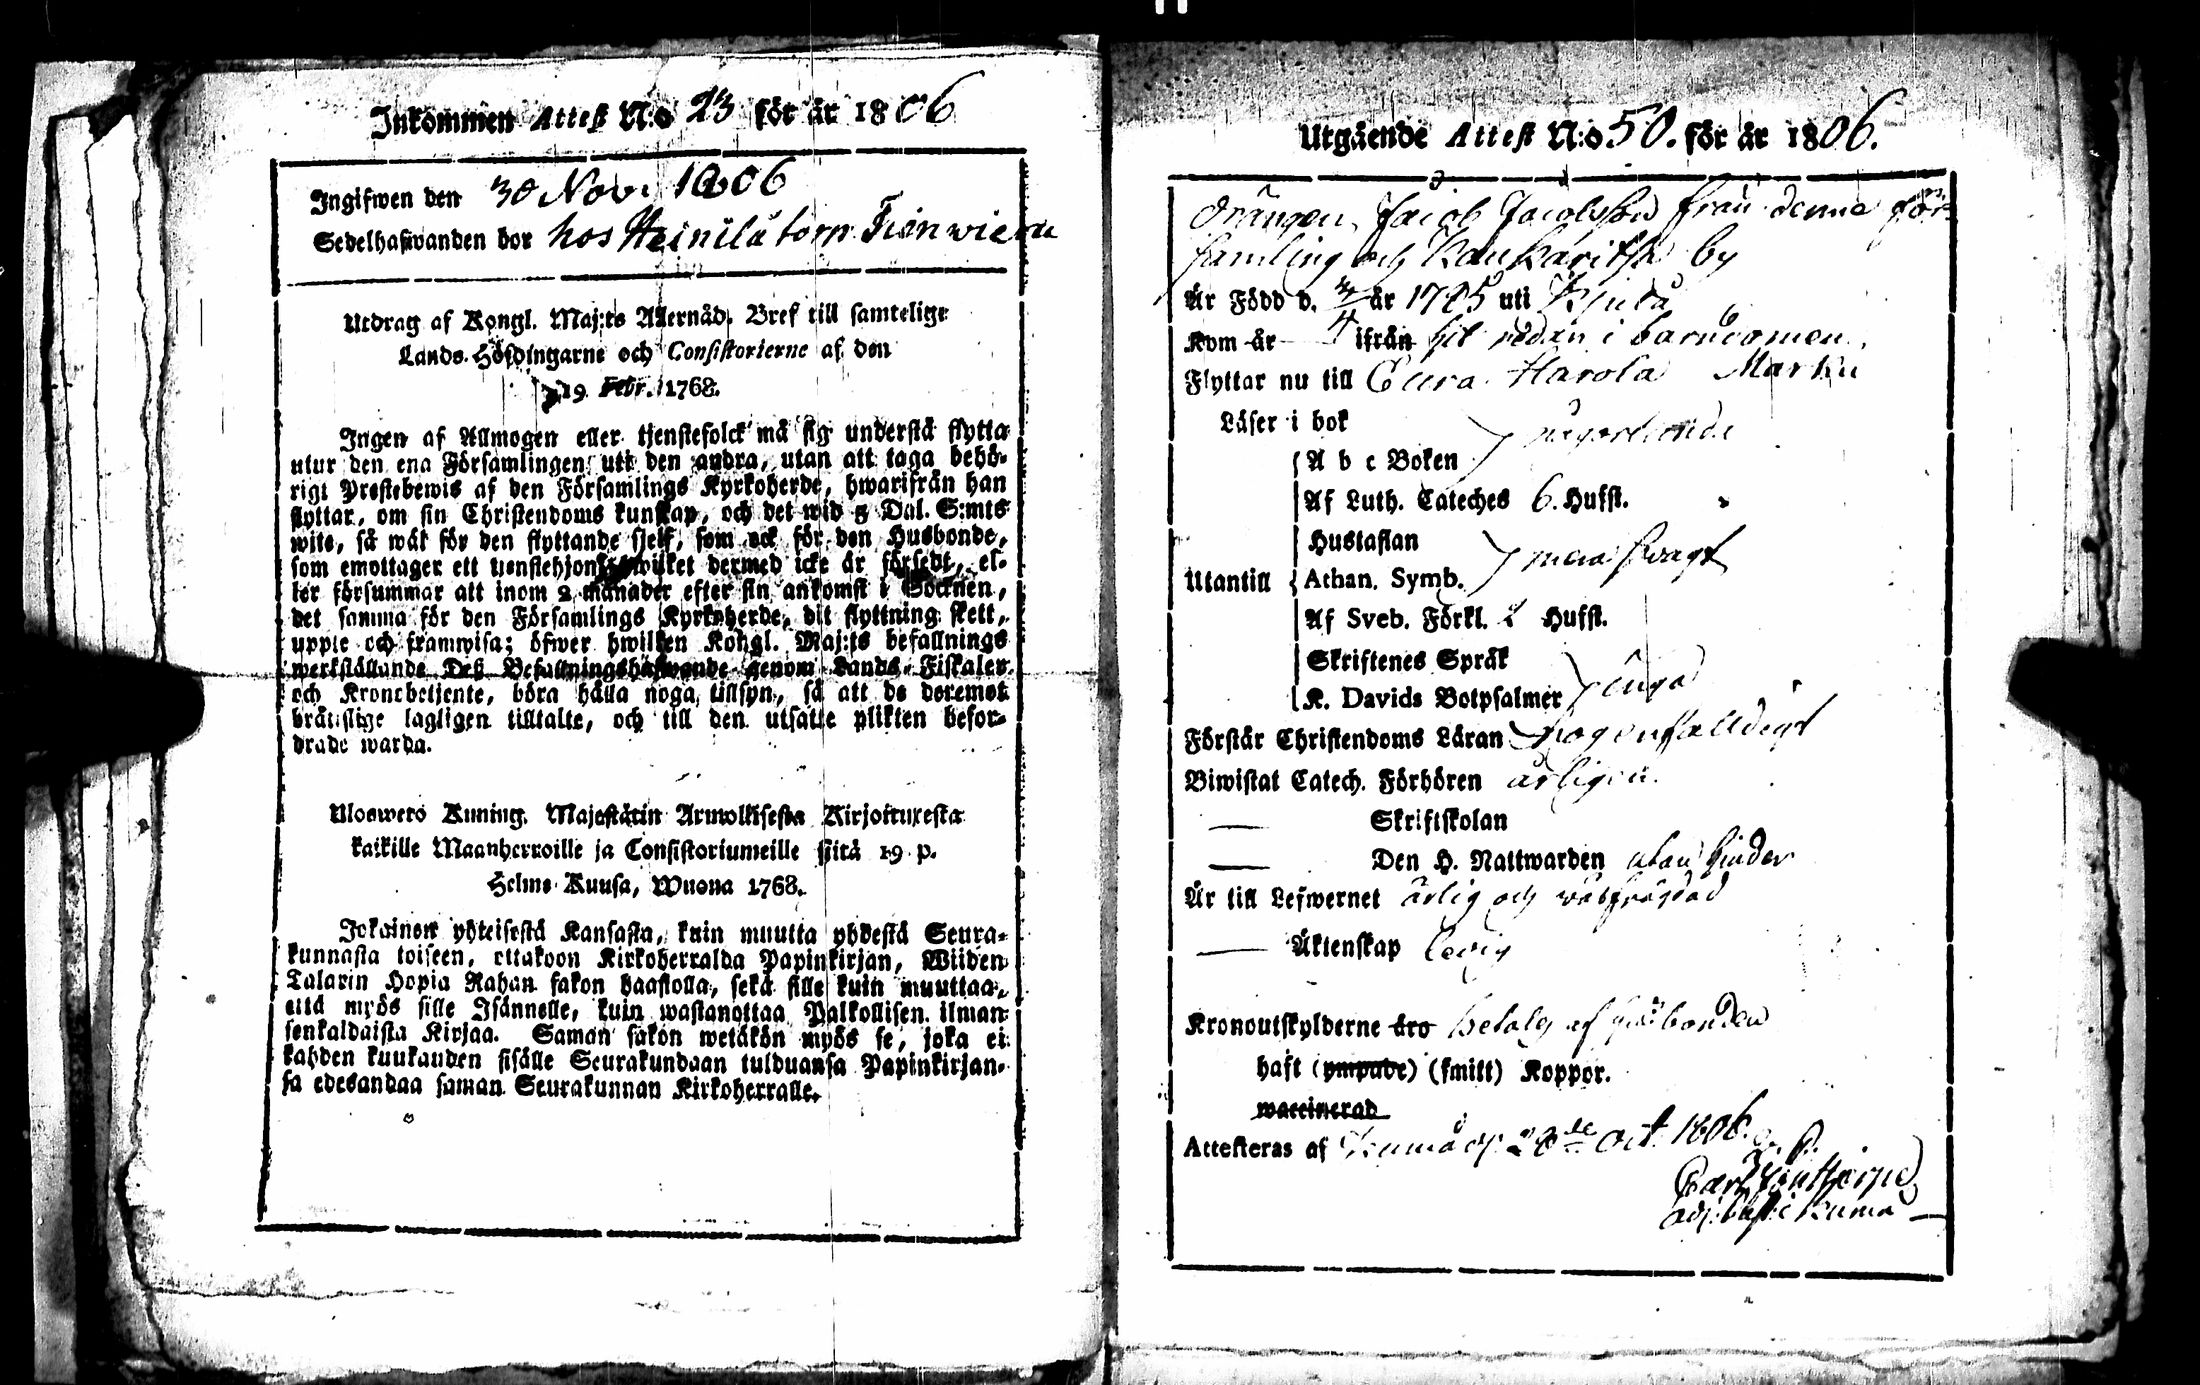 Inkommen Attest N:o 23 för år 1806
Ingifwen den 30 Nov. 1806
Sedelhafwanden bor hos Heinilä torp
Utdrag af Kongl. Maj:ts Allernåd. Bref till samtelige
Lands-Höfdingarne och Consistorierne af den
19 Febr. 1768.
Ingen af Allmogen eller tjenstefolck må sig understå flytta
utur den ena Församlingen uti den andra, utan att taga behö-
rigt Prestebewis af den Församlings Kyrkoherde, hwarifrån han
flyttar, om sin Christendoms kunskap, och det wid 5 Dal. S:mts
wite, så wäl för den flyttande sjelf, som ock för den Husbonde,
som emottager ett tjenstehjon, hwilket dermed icke är försedt, el-
ler försummar att inom 2 månader efter sin ankomst i Socknen,
det samma för den Församlings Kyrkoherde, dit flyttning skett,
uppte och framwisa; öfwer hwilken Kongl. Maj:ts befallnings
werkställande Deß Befallningshafwande genom Lands-Fiskaler
och Kronobetjente, böra hålla noga tillsyn, så att de deremot
brätslige lagligen tilltalte, och till den utsatte plikten befor-
drade warda.
Uloswero Kuning. Majestätin Armollisesta Kirjoituxesta
kaikille Maanherroille ja Consistoriumeille siitä 19 p.
Helme-Kuusa, Wuona 1768.
Jokainen yhteisestä Kansasta, kuin muutta yhdestä Seura-
kunnasta toiseen, ottakoon Kirkoherralda Papinkirjan, Wiiden
Talarin Hopia Rahan sakon haastolla, sekä sille kuin muuttaa,
että myös sille Isännelle, kuin wastanottaa Palkollisen ilman
senkaldaista Kirjaa. Saman sakon wetäkön myös se, joka ei
kahden kuukauden sisälle Seurakundaan tulduansa Papinkirjan-
sa edesandaa saman Seurakunnan Kirkoherralle.
Utgående Attest N:o 50. för år 1806.
Drängen Jacob Jacobsson från denna för-
samling och Kaukaritsa by
Är Född d. år 1785 uti Kjulå
Kom år ifrån hit redan i barndomen.
Flyttar nu till Eura Harola
Läser i bok
A b c Boken
Af Luth. Cateches 6. Hufst.
Hustaflan
Utantill Athan. Symb. svagt
Af Sveb. Förkl. 2 Hufst.
Skriftenes Språk
K. Davids Botpsalmer inga
Förstår Christendoms Läran
Biwistat Catech. Förhören årligen.
— Skriftskolan
— Den H. Nattwarden utan hinder
Är till Lefwernet ärlig och wälfrägdad
— Äktenskap ledig
Kronoutskylderne äro betalt af husbonden
haft (ympade) (smitt) Koppor.
waccinerad
Attesteras af Kumo d. 28de Oct. 1806.
Carl
Kumo